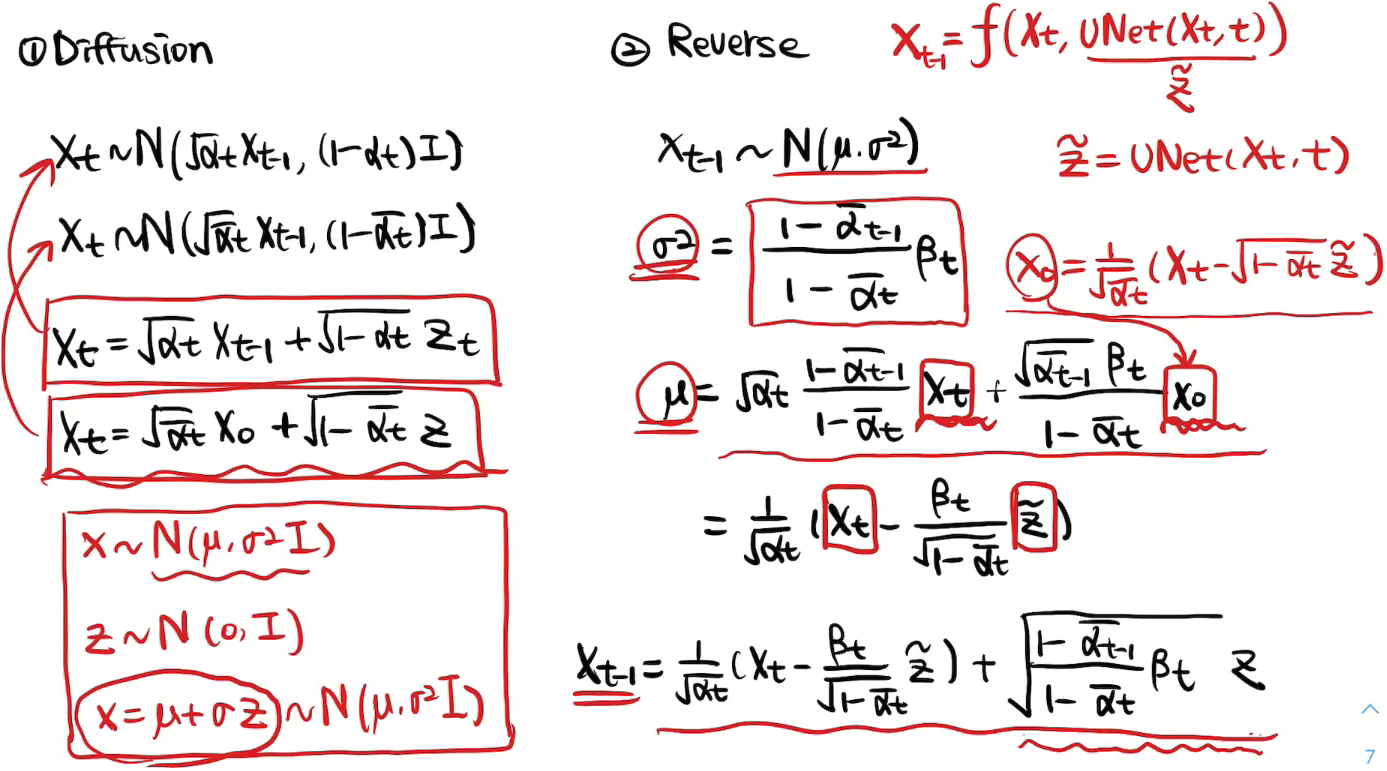 ① Diffusion
Xt ~ N(√αt Xt-1, (1-αt)I)
Xt ~ N(√ᾱt Xt-1, (1-ᾱt)I)
Xt = √αt Xt-1 + √(1-αt) Zt
Xt = √ᾱt X0 + √(1-ᾱt) Z
X ~ N(μ, σ²I)
Z ~ N(0, I)
X = μ + σZ ~ N(μ, σ²I)
② Reverse
Xt-1 = f(Xt, UNet(Xt, t))
z̃
Xt-1 ~ N(μ, σ²)
z̃ = UNet(Xt, t)
σ² = (1-ᾱt-1)/(1-ᾱt) βt
X0 = 1/√ᾱt (Xt - √(1-ᾱt) z̃)
μ = √αt (1-ᾱt-1)/(1-ᾱt) Xt + (√ᾱt-1 βt)/(1-ᾱt) X0
= 1/√αt (Xt - βt/√(1-ᾱt) z̃)
Xt-1 = 1/√αt (Xt - βt/√(1-ᾱt) z̃) + √((1-ᾱt-1)/(1-ᾱt) βt) Z
7